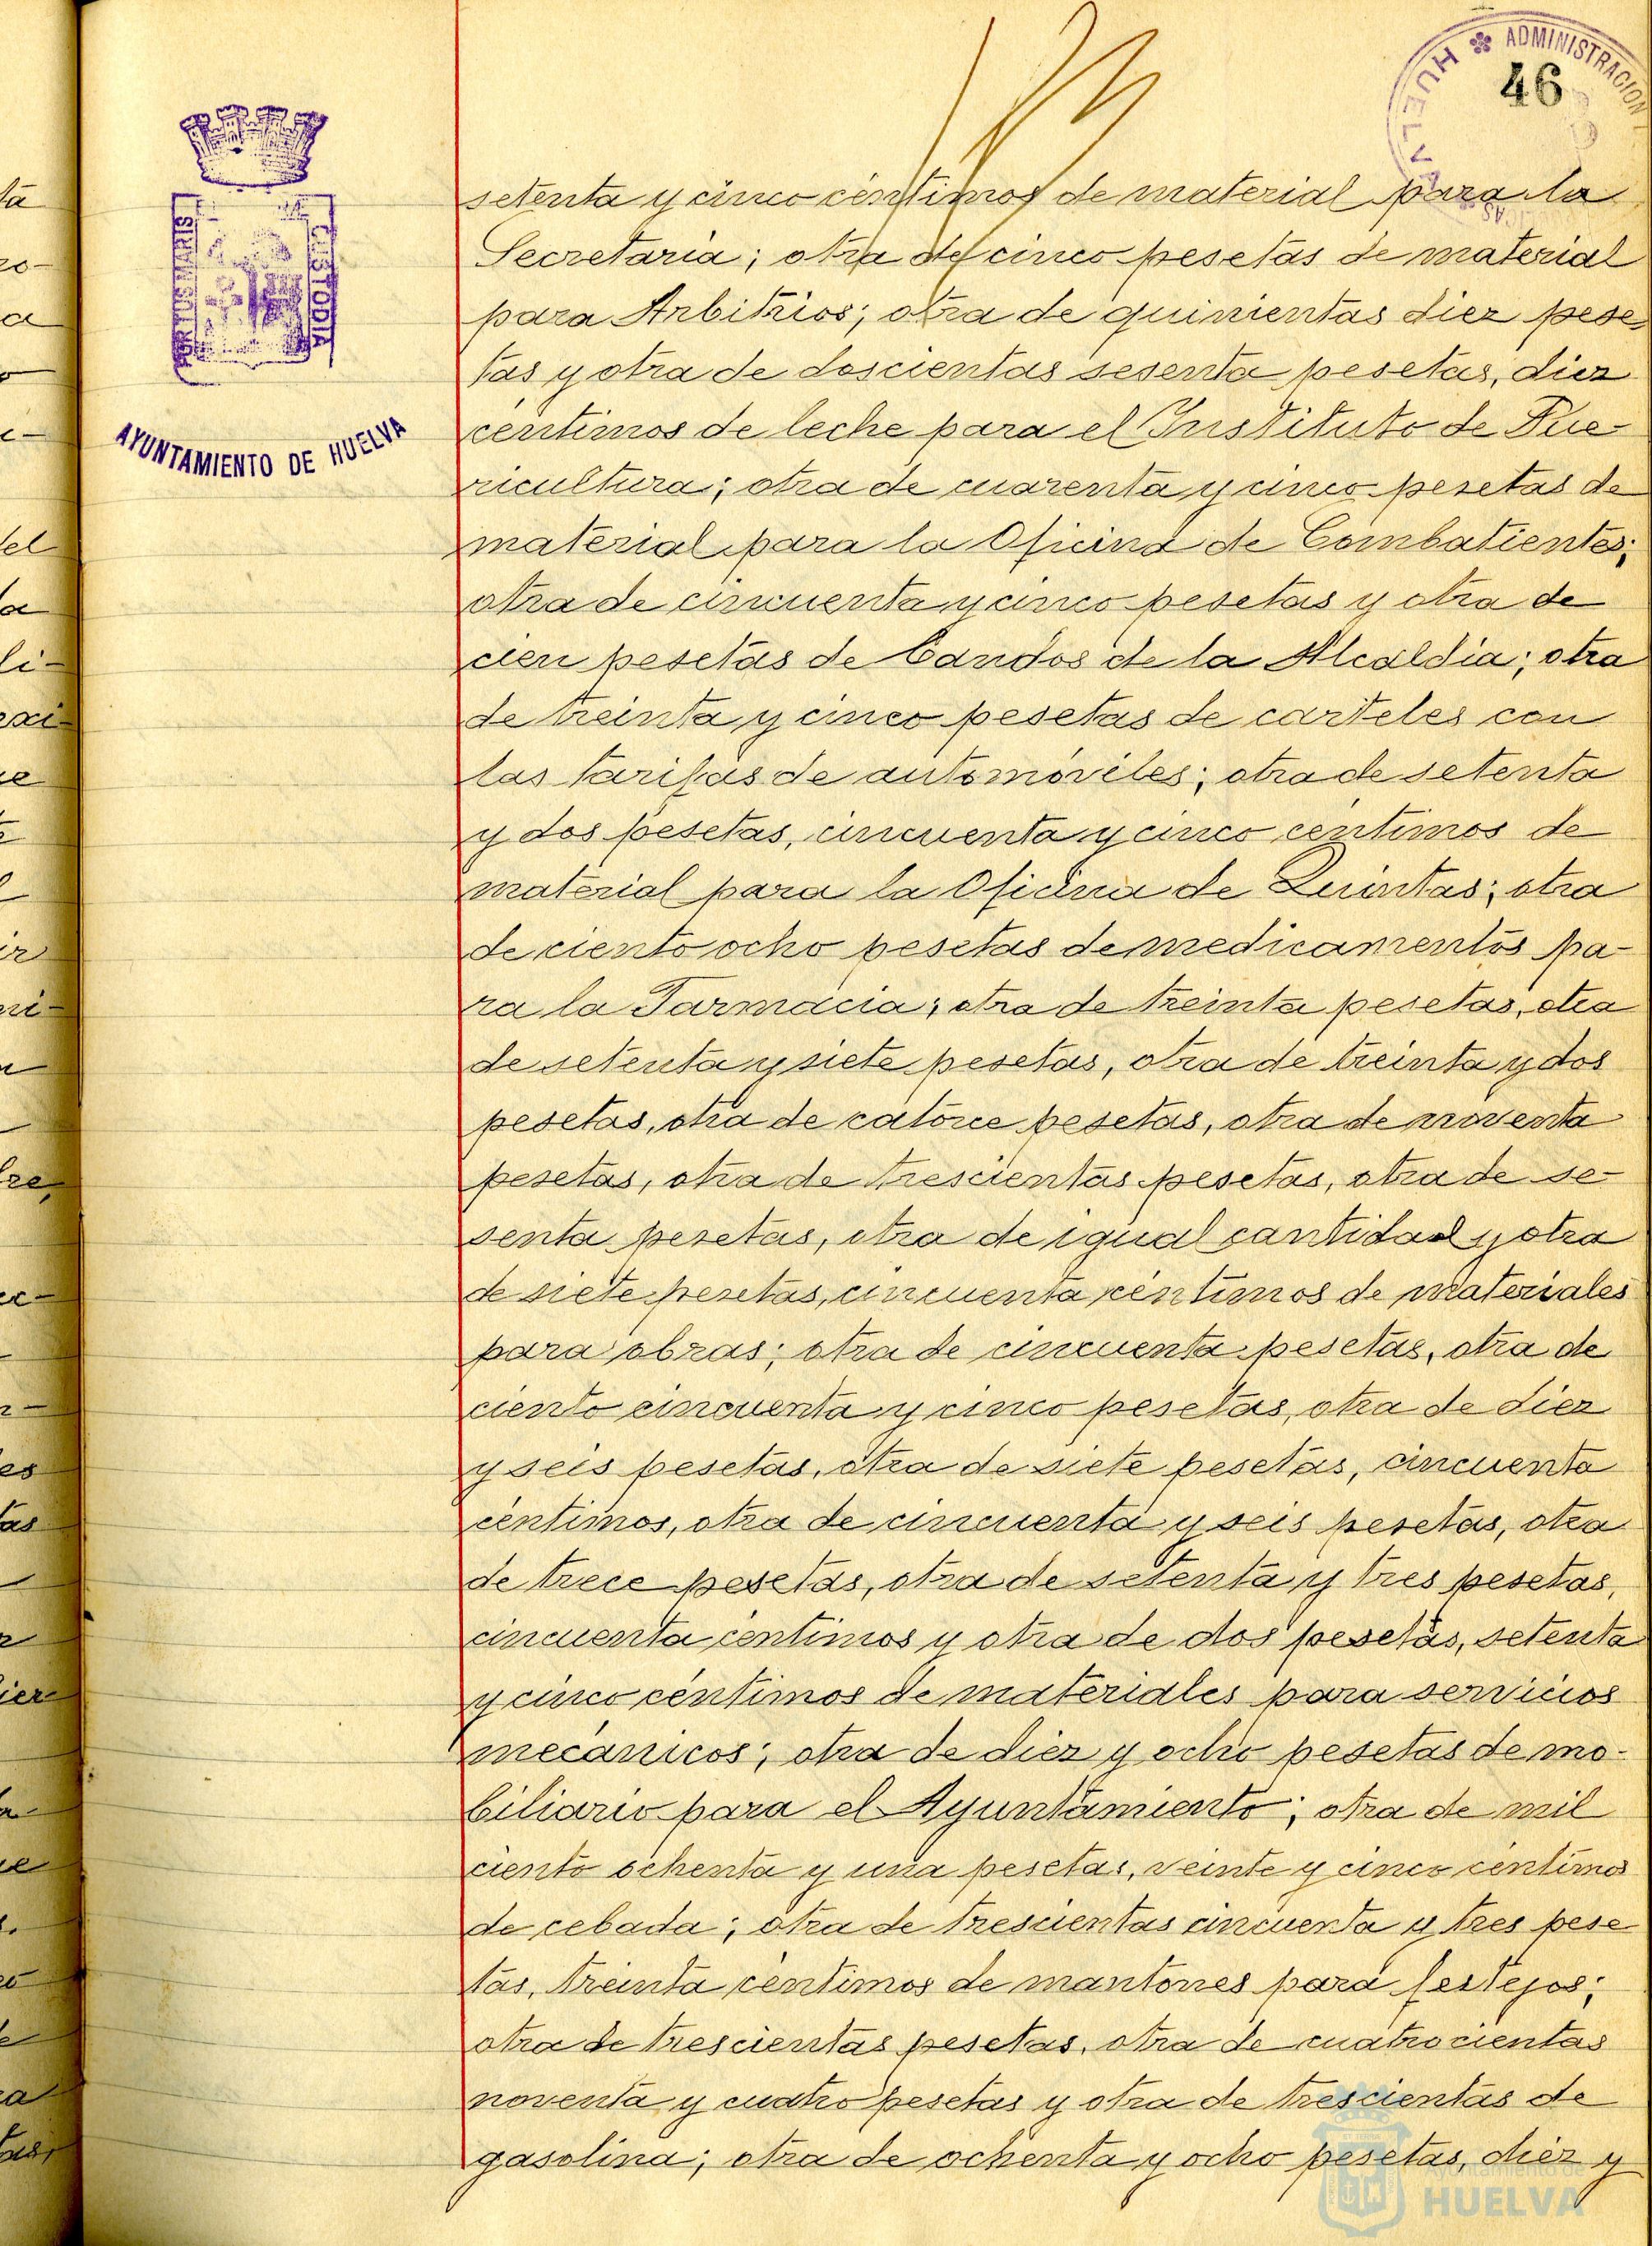 ADMINISTRACION
HUELVA
46
PORTUS MARIS
CUSTODIA
AYUNTAMIENTO DE HUELVA
setenta y cinco céntimos de material para la
Secretaría; otra de cinco pesetas de material
para Arbitrios; otra de quinientas diez pese-
tas y otra de doscientas sesenta pesetas, diez
céntimos de leche para el Instituto de Pue-
ricultura; otra de cuarenta y cinco pesetas de
material para la Oficina de Combatientes;
otra de cincuenta y cinco pesetas y otra de
cien pesetas de bandos de la Alcaldía; otra
de treinta y cinco pesetas de carteles con
las tarifas de automóviles; otra de setenta
y dos pesetas, cincuenta y cinco céntimos de
material para la Oficina de Quintas; otra
de ciento ocho pesetas de medicamentos pa-
ra la Farmacia; otra de treinta pesetas, otra
de setenta y siete pesetas, otra de treinta y dos
pesetas, otra de catorce pesetas, otra de noventa
pesetas, otra de trescientas pesetas, otra de se-
senta pesetas, otra de igual cantidad y otra
de siete pesetas, cincuenta céntimos de materiales
para obras; otra de cincuenta pesetas, otra de
ciento cincuenta y cinco pesetas, otra de diez
y seis pesetas, otra de siete pesetas, cincuenta
céntimos, otra de cincuenta y seis pesetas, otra
de trece pesetas, otra de setenta y tres pesetas,
cincuenta céntimos y otra de dos pesetas, setenta
y cinco céntimos de materiales para servicios
mecánicos; otra de diez y ocho pesetas de mo-
biliario para el Ayuntamiento; otra de mil
ciento ochenta y una pesetas, veinte y cinco céntimos
de cebada; otra de trescientas cincuenta y tres pese
tas, treinta céntimos de mantones para festejos;
otra de trescientas pesetas, otra de cuatrocientas
noventa y cuatro pesetas y otra de trescientas de
gasolina; otra de ochenta y ocho pesetas, diez y
Ayuntamiento de
HUELVA